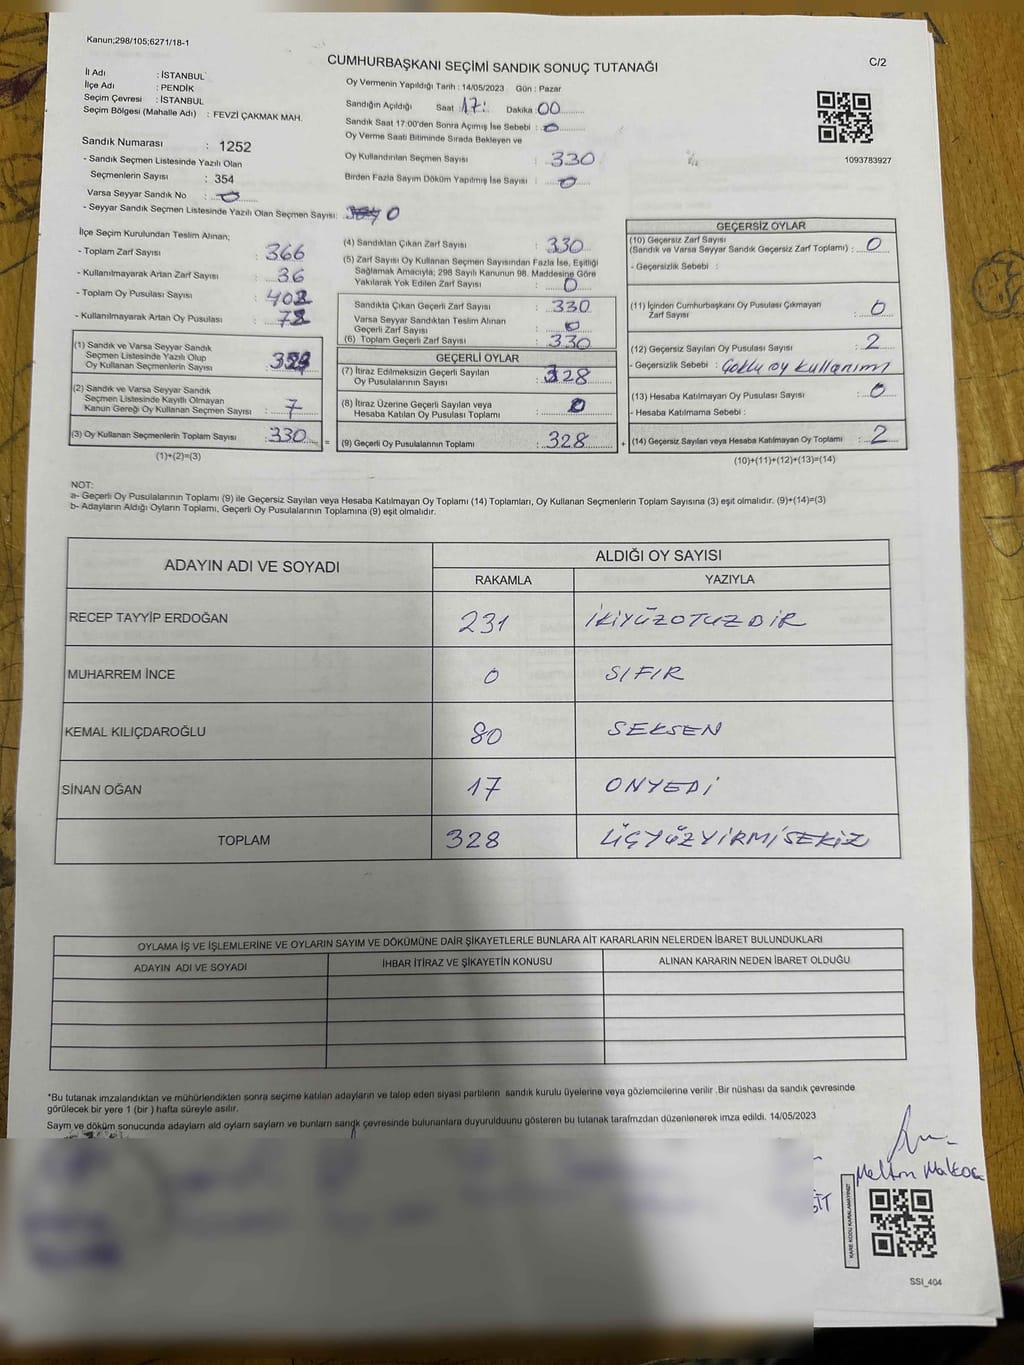 Kanun;298/105;6271/18-1
C/2
CUMHURBAŞKANI SEÇİMİ SANDIK SONUÇ TUTANAĞI
İl Adı : İSTANBUL
İlçe Adı : PENDİK
Seçim Çevresi : İSTANBUL
Seçim Bölgesi (Mahalle Adı) : FEVZİ ÇAKMAK MAH.
Sandık Numarası : 1252
- Sandık Seçmen Listesinde Yazılı Olan
Seçmenlerin Sayısı : 354
Varsa Seyyar Sandık No : 0
- Seyyar Sandık Seçmen Listesinde Yazılı Olan Seçmen Sayısı: 0
Oy Vermenin Yapıldığı Tarih : 14/05/2023 Gün : Pazar
Sandığın Açıldığı Saat : 17: Dakika : 00
Sandık Saat 17:00'den Sonra Açımış İse Sebebi : 0
Oy Verme Saati Bitiminde Sırada Bekleyen ve
Oy Kullandırılan Seçmen Sayısı : 330
Birden Fazla Sayım Döküm Yapılmış İse Sayısı : 0
1093783927
İlçe Seçim Kurulundan Teslim Alınan;
- Toplam Zarf Sayısı : 366
- Kullanılmayarak Artan Zarf Sayısı : 36
- Toplam Oy Pusulası Sayısı : 402
- Kullanılmayarak Artan Oy Pusulası : 72
(1) Sandık ve Varsa Seyyar Sandık
Seçmen Listesinde Yazılı Olup
Oy Kullanan Seçmenlerin Sayısı :
(2) Sandık ve Varsa Seyyar Sandık
Seçmen Listesinde Kayıtlı Olmayan
Kanun Gereği Oy Kullanan Seçmen Sayısı : 7
(3) Oy Kullanan Seçmenlerin Toplam Sayısı : 330 =
(1)+(2)=(3)
(4) Sandıktan Çıkan Zarf Sayısı : 330
(5) Zarf Sayısı Oy Kullanan Seçmen Sayısından Fazla İse, Eşitliği
Sağlamak Amacıyla; 298 Sayılı Kanunun 98. Maddesine Göre
Yakılarak Yok Edilen Zarf Sayısı : 0
Sandıkta Çıkan Geçerli Zarf Sayısı : 330
Varsa Seyyar Sandıktan Teslim Alınan
Geçerli Zarf Sayısı : 0
(6) Toplam Geçerli Zarf Sayısı : 330
GEÇERLİ OYLAR
(7) İtiraz Edilmeksizin Geçerli Sayılan
Oy Pusulalarının Sayısı : 328
(8) İtiraz Üzerine Geçerli Sayılan veya
Hesaba Katılan Oy Pusulası Toplamı : 0
(9) Geçerli Oy Pusulalarının Toplamı : 328 +
GEÇERSİZ OYLAR
(10) Geçersiz Zarf Sayısı
(Sandık ve Varsa Seyyar Sandık Geçersiz Zarf Toplamı) : 0
- Geçersizlik Sebebi :
(11) İçinden Cumhurbaşkanı Oy Pusulası Çıkmayan
Zarf Sayısı : 0
(12) Geçersiz Sayılan Oy Pusulası Sayısı : 2
- Geçersizlik Sebebi : Çoklu oy kullanımı
(13) Hesaba Katılmayan Oy Pusulası Sayısı : 0
- Hesaba Katılmama Sebebi :
(14) Geçersiz Sayılan veya Hesaba Katılmayan Oy Toplamı : 2
(10)+(11)+(12)+(13)=(14)
NOT:
a- Geçerli Oy Pusulalarının Toplamı (9) ile Geçersiz Sayılan veya Hesaba Katılmayan Oy Toplamı (14) Toplamları, Oy Kullanan Seçmenlerin Toplam Sayısına (3) eşit olmalıdır. (9)+(14)=(3)
b- Adayların Aldığı Oyların Toplamı, Geçerli Oy Pusulalarının Toplamına (9) eşit olmalıdır.
ADAYIN ADI VE SOYADI ALDIĞI OY SAYISI
RAKAMLA YAZIYLA
RECEP TAYYİP ERDOĞAN 231 İKİYÜZOTUZBİR
MUHARREM İNCE 0 SIFIR
KEMAL KILIÇDAROĞLU 80 SEKSEN
SİNAN OĞAN 17 ONYEDİ
TOPLAM 328 ÜÇYÜZYİRMİSEKİZ
OYLAMA İŞ VE İŞLEMLERİNE VE OYLARIN SAYIM VE DÖKÜMÜNE DAİR ŞİKAYETLERLE BUNLARA AİT KARARLARIN NELERDEN İBARET BULUNDUKLARI
ADAYIN ADI VE SOYADI İHBAR İTİRAZ VE ŞİKAYETİN KONUSU ALINAN KARARIN NEDEN İBARET OLDUĞU
*Bu tutanak imzalandıktan ve mühürlendikten sonra seçime katılan adayların ve talep eden siyasi partilerin sandık kurulu üyelerine veya gözlemcilerine verilir .Bir nüshası da sandık çevresinde
görülecek bir yere 1 (bir ) hafta süreyle asılır.
Sayım ve döküm sonucunda adayların ald oyların sayların ve bunların sandk çevresinde bulunanlara duyurulduunu gösteren bu tutanak tarafmzdan düzenlenerek imza edildi. 14/05/2023
Meltem
KARE KODU KARALAMAYINIZ!
SSI_404